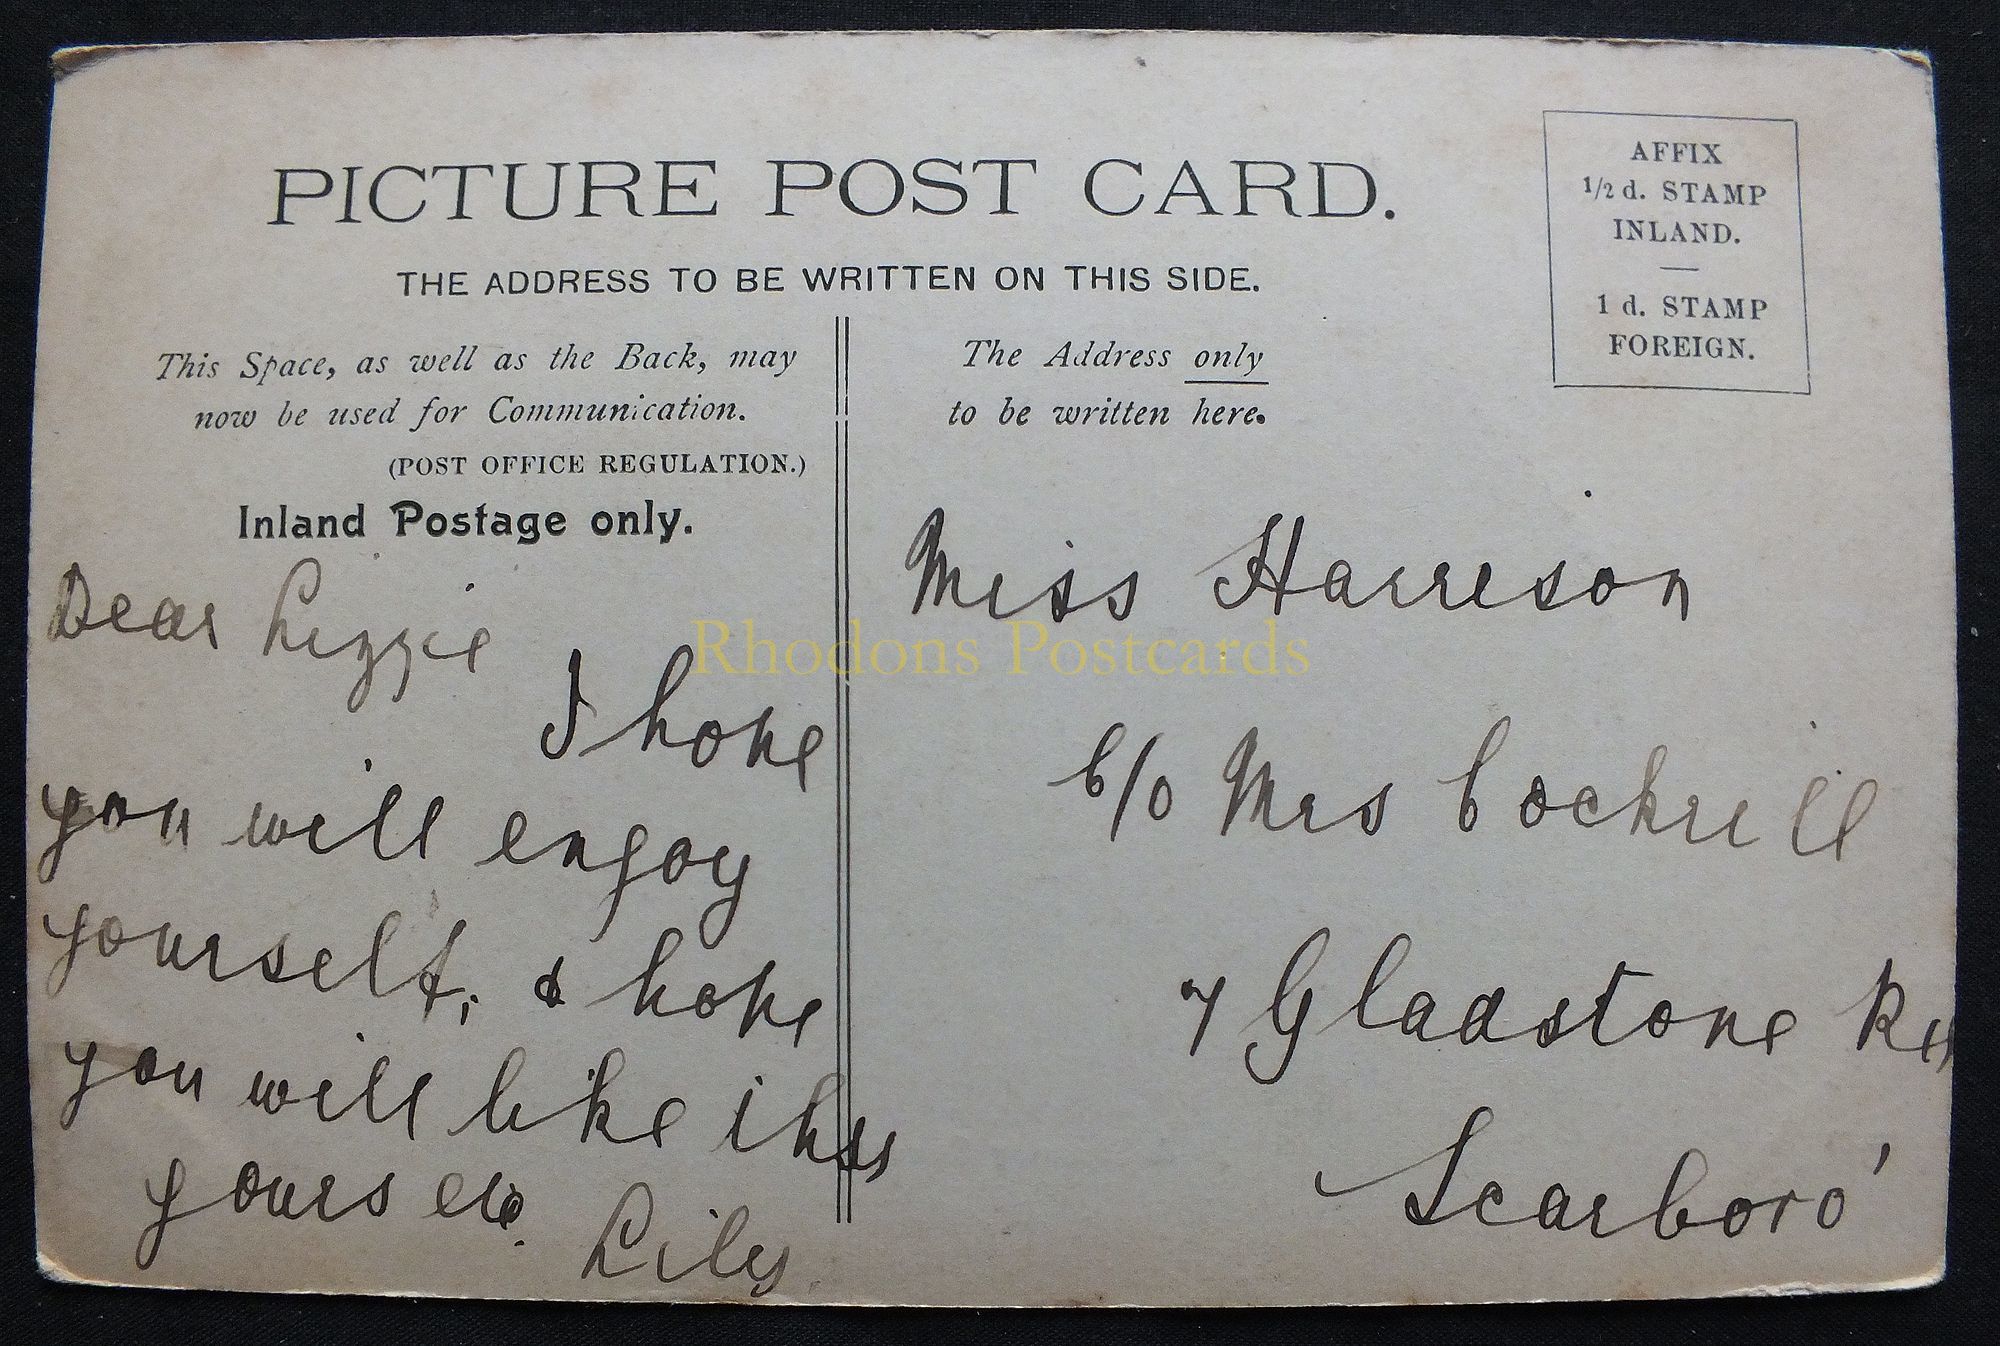 PICTURE POST CARD.
THE ADDRESS TO BE WRITTEN ON THIS SIDE.
AFFIX
1/2 d. STAMP
INLAND.
1 d. STAMP
FOREIGN.
This Space, as well as the Back, may
now be used for Communication.
(POST OFFICE REGULATION.)
Inland Postage only.
The Address only
to be written here.
Dear Lizzie
I hope
you will enjoy
yourself, & hope
you will like this
yours etc. Lily
Miss Harrison
C/O Mrs Cockrill
7 Gladstone Rd
Scarboro'
Rhodons Postcards